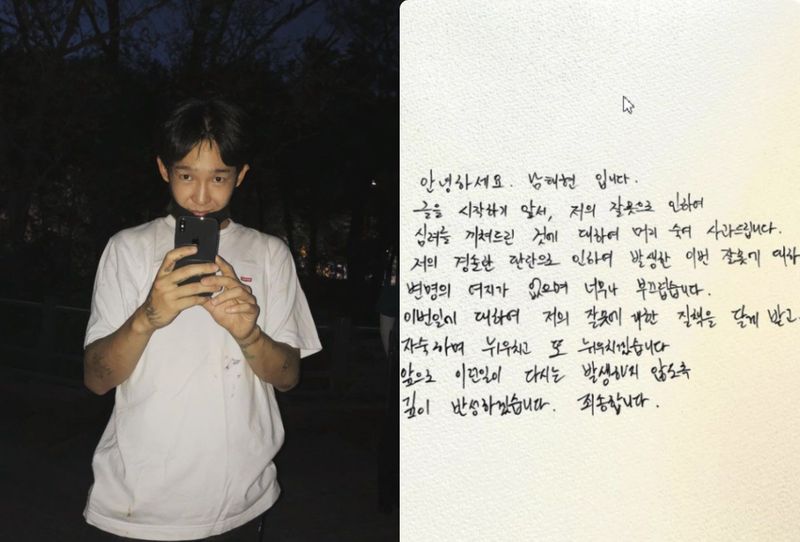 안녕하세요. 남태현 입니다.
글을 시작하기 앞서, 저의 잘못으로 인하여
심려를 끼쳐드린 것에 대하여 머리 숙여 사과드립니다.
저의 경솔한 판단으로 인하여 발생한 이번 잘못에 대하
변명의 여지가 없으며 너무나 부끄럽습니다.
이번일에 대하여 저의 잘못에 대한 질책을 달게 받고
자숙하며 뉘우치고 또 뉘우치겠습니다
앞으로 이런일이 다시는 발생하지 않도록
깊이 반성하겠습니다. 죄송합니다.